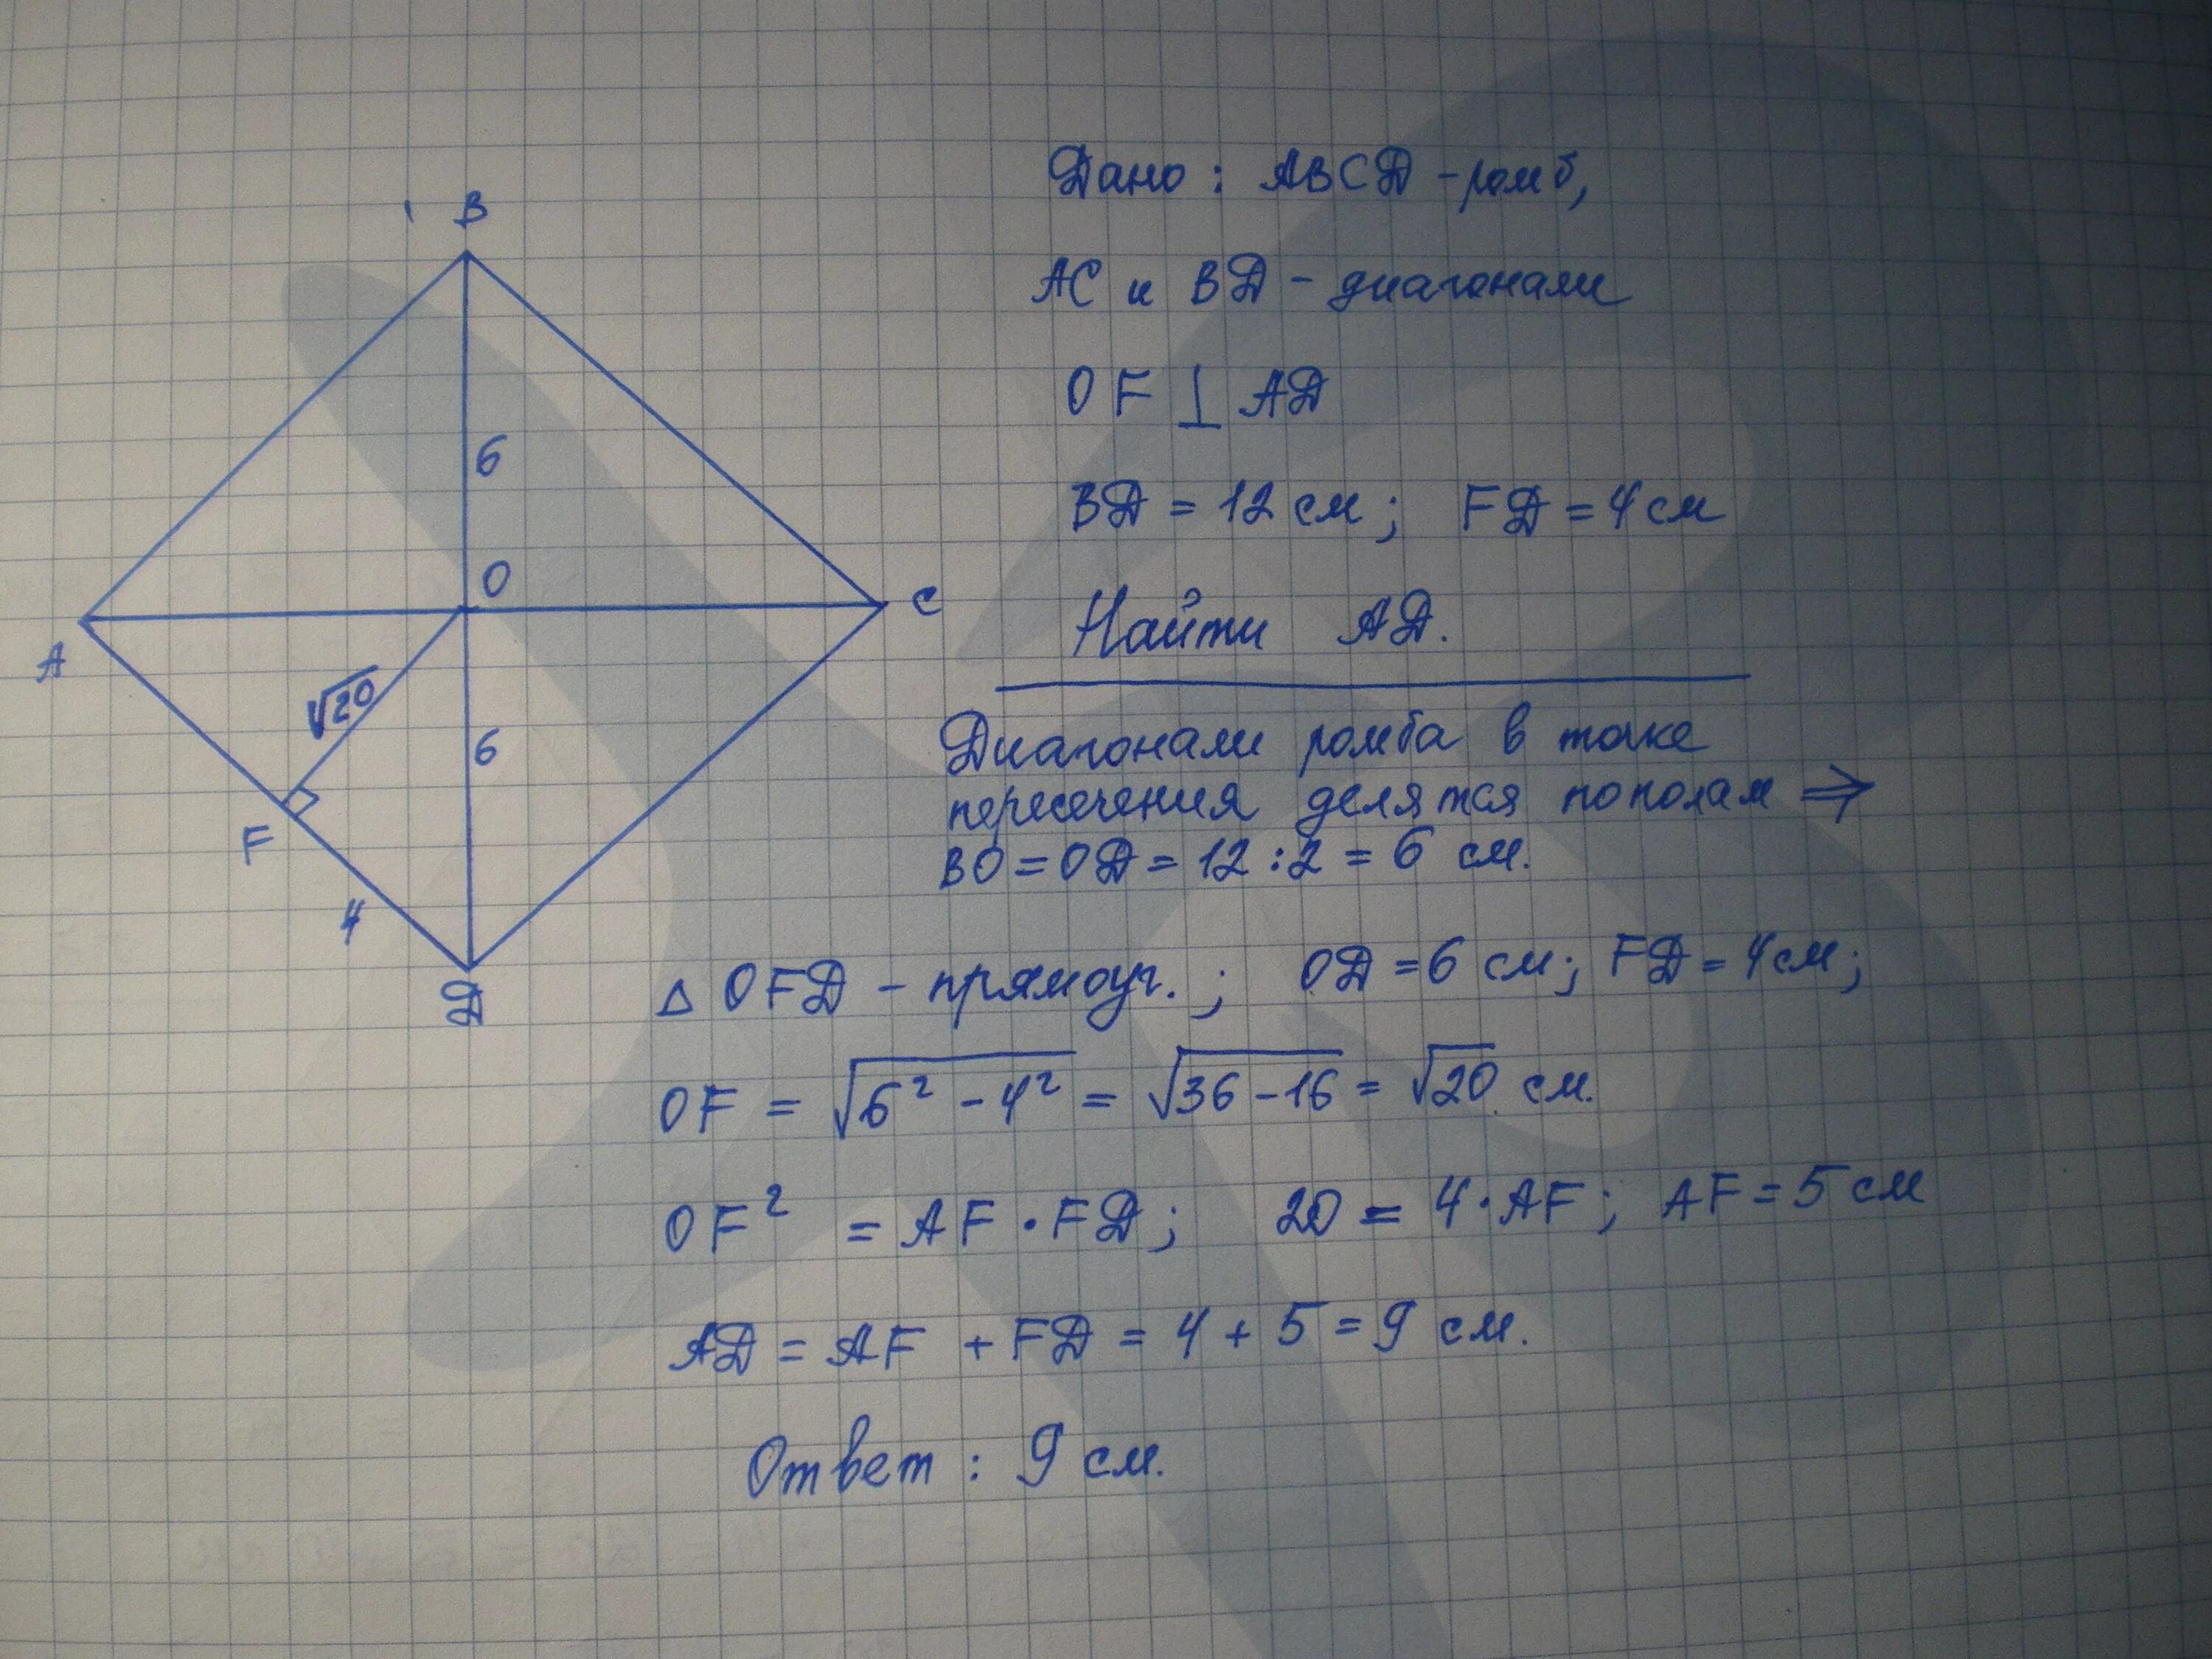 Дано: ABCD - ромб,
AC и BD - диагонали
OF ⊥ AD
BD = 12 см; FD = 4 см
Найти AD.
Диагонали ромба в точке
пересечения делятся пополам ⇒
BO = OD = 12 : 2 = 6 см.
Δ OFD - прямоуг.; OD = 6 см; FD = 4 см;
OF = √(6² - 4²) = √(36 - 16) = √20 см.
OF² = AF · FD; 20 = 4 · AF; AF = 5 см
AD = AF + FD = 4 + 5 = 9 см.
Ответ: 9 см.
B
6
O
C
A
√20
6
F
4
D